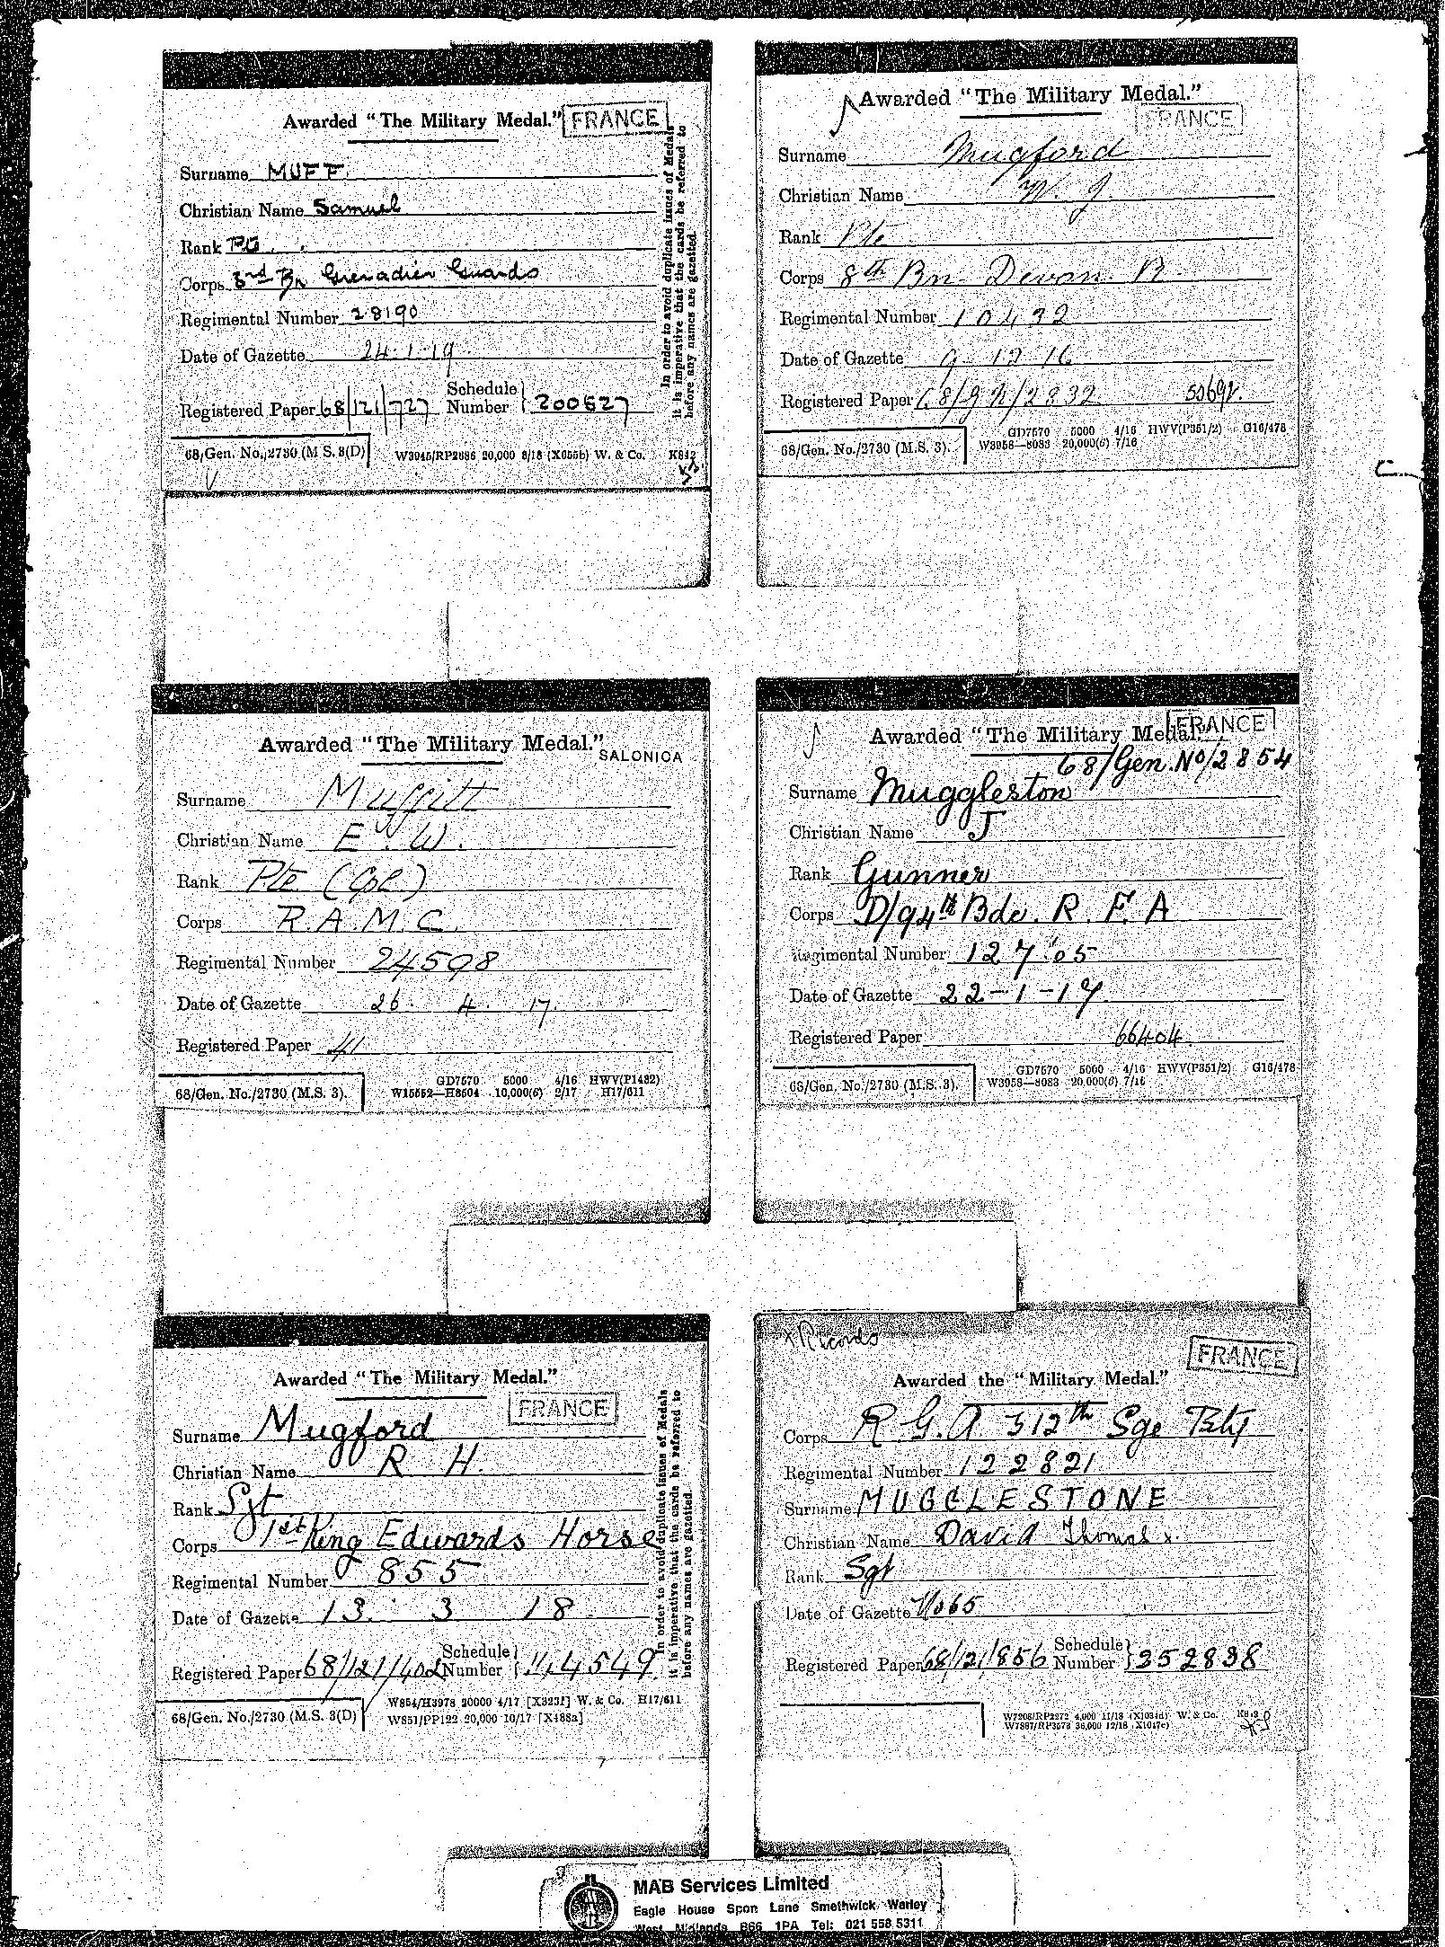 Awarded "The Military Medal." FRANCE
Surname MUFF
Christian Name Samuel
Rank
Corps 3rd Bn Grenadier Guards
Regimental Number 28190
Date of Gazette 24.1.19
Registered Paper 68/121/727 Schedule Number 200627
68/Gen. No./2730 (M.S. 3(D) W3945/RP2886 20,000 8/18 (X655b) W. & Co. K812
In order to avoid duplicate issues of Medals
it is imperative that the cards be referred to
before any names are gazetted.
Awarded "The Military Medal."
FRANCE
Surname Mugford
Christian Name W. J.
Rank Pte
Corps 8th Bn Devon R.
Regimental Number 10432
Date of Gazette 9 12 16
Registered Paper 68/92/2832
68/Gen. No./2730 (M.S. 3). GD7570 5000 4/16 HWV(P351/2) G16/478
W3958—8083 20,000(6) 7/16
Awarded "The Military Medal."
SALONICA
Surname Muffitt
Christian Name E. W.
Rank Pte (Cpl)
Corps R.A.M.C.
Regimental Number 24598
Date of Gazette 26. 4. 17.
Registered Paper 41
68/Gen. No./2730 (M.S. 3). GD7570 5000 4/16 HWV(P1482)
W15552—H8504 10,000(6) 2/17 H17/611
Awarded "The Military Medal. FRANCE
68/Gen.No/2854
Surname Muggleston
Christian Name J
Rank Gunner
Corps D/94th Bde. R.F.A
Regimental Number 127 05
Date of Gazette 22-1-17
Registered Paper 66404
68/Gen. No./2730 (M.S. 3). GD7570 5000 4/16 HWV(P351/2) G16/478
W3958—8083 20,000(6) 7/16
Awarded "The Military Medal."
FRANCE
Surname Mugford
Christian Name R H.
Rank Sgt
Corps 1st King Edwards Horse
Regimental Number 855
Date of Gazette 13. 3 18
Registered Paper 68/121/402 Schedule Number 114549
68/Gen. No./2730 (M.S. 3(D) W854/H3978 20000 4/17 [X323?] W. & Co. H17/611
W851/PP122 20,000 10/17 [X488a]
In order to avoid duplicate issues of Medals
it is imperative that the cards be referred to
before any names are gazetted.
x Records
FRANCE
Awarded the "Military Medal."
Corps R G.A 312th Sge Bty
Regimental Number 122821
Surname MUGGLESTONE
Christian Name David Thomas x.
Rank Sgt
Date of Gazette
Registered Paper 68/121/856 Schedule Number 352838
W7208/RP2272 4,000 11/18 (X1034d) W. & Co.
W7887/RP3573 36,000 12/18 X1047c)
MAB Services Limited
Eagle House Spon Lane Smethwick Warley
West Midlands B66 1PA Tel: 021 558 5311